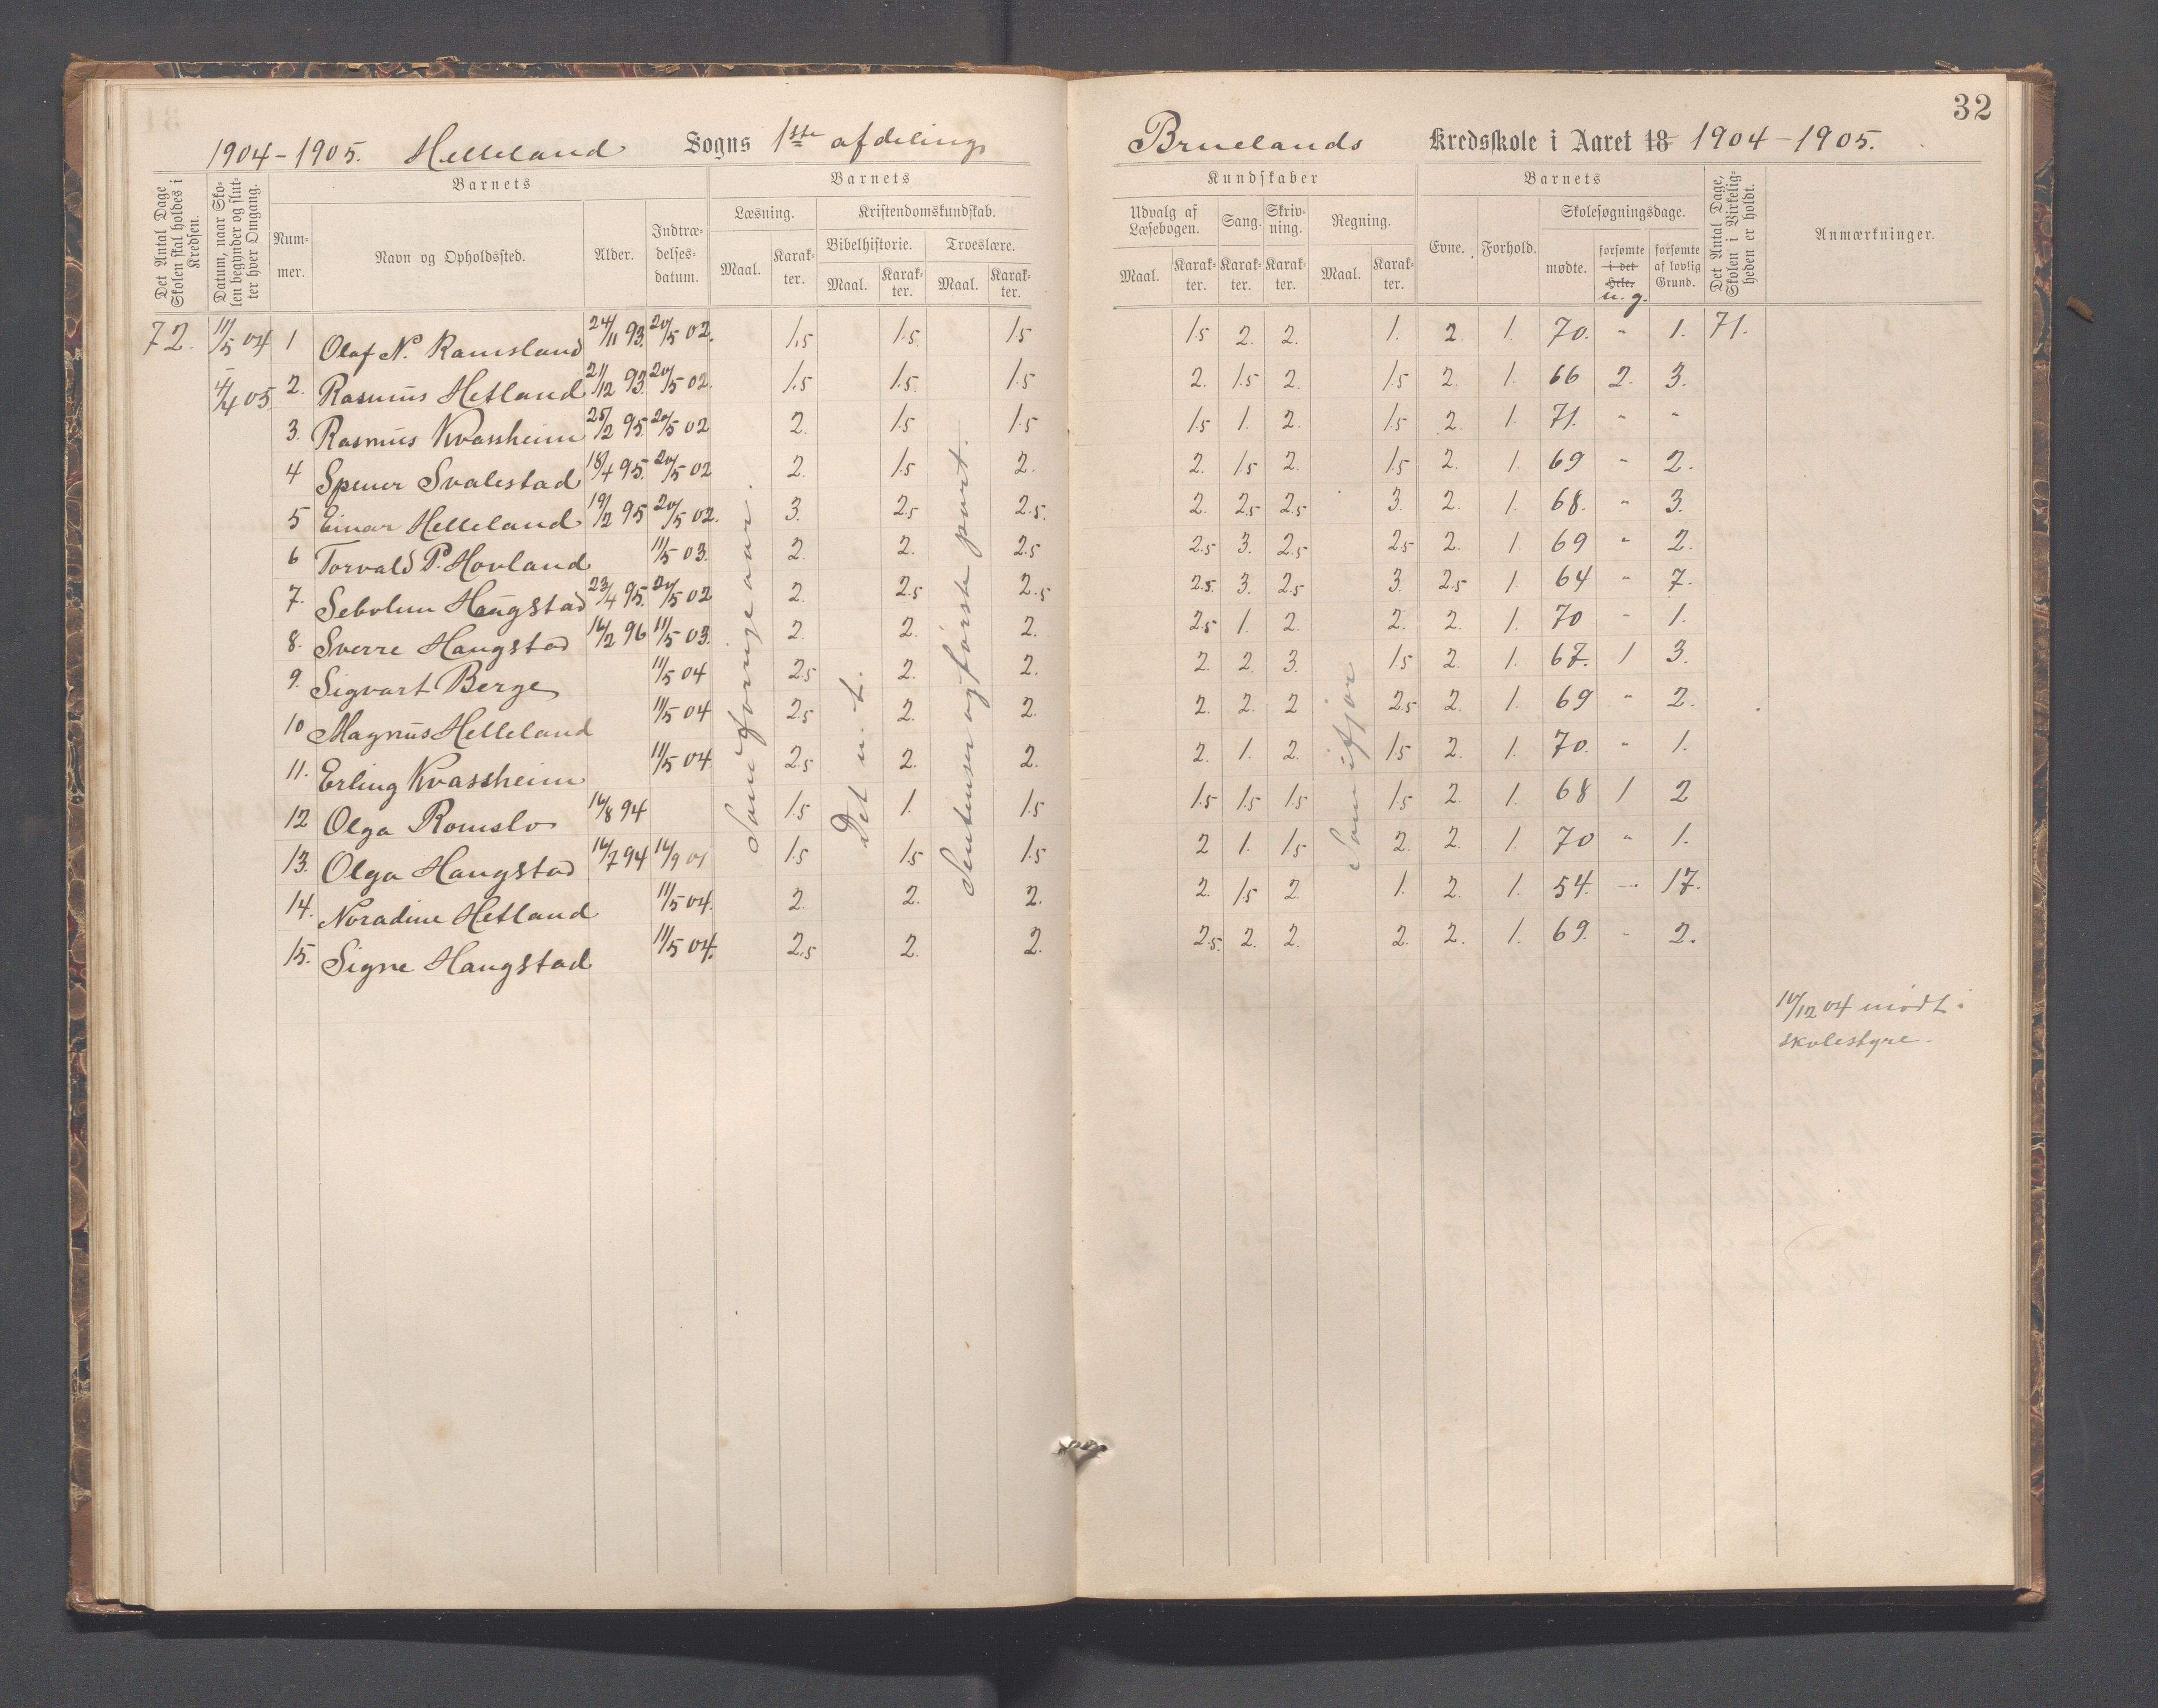 32
1904-1905. Helleland Sogns 1ste afdeling
Bruelands Kredsskole i Aaret 18 1904-1905.
Det Antal Dage Skolen skal holdes i Kredsen.
Datum, naar Skolen begynder og slutter hver Omgang.
Barnets
Nummer.
Navn og Opholdssted.
Alder.
Indtrædelsesdatum.
Barnets
Læsning.
Maal. Karakter.
Kristendomskundskab.
Bibelhistorie. Troeslære.
Maal. Karakter. Maal. Karakter.
Kundskaber
Udvalg af Læsebogen. Sang. Skrivning. Regning.
Maal. Karakter. Karakter. Karakter. Maal. Karakter.
Barnets
Evne. Forhold. Skolesøgningsdage.
mødte. forsømte i det Hele. u. g. forsømte af lovlig Grund.
Det Antal Dage, Skolen i Virkeligheden er holdt.
Anmærkninger.
72. 11/5 04 1 Olaf N. Ramsland 24/11 93. 20/5 02. 1.5 1.5 1.5 1.5 2. 2. 1. 2. 1. 70. " 1. 71.
- 4/4 05. 2. Rasmus Hetland 21/12 93. 20/5 02. 1.5 1.5 1.5 2. 1.5 2. 1.5 2. 1. 66 2. 3.
3. Rasmus Kvassheim 25/2 95. 20/5 02 2. 1.5 1.5 1.5 1. 2. 1.5 2. 1. 71. " "
4 Spener Svalestad 18/4 95. 20/5 02 2. 1.5 2. 2. 1.5 2. 1.5 2. 1. 69 " 2.
5 Einar Helleland 19/2 95 20/5 02. 3. 2.5 2.5. 2. 2.5 2.5 3. 2. 1. 68. " 3.
6 Torvald P. Hovland 11/5 03. 2. 2. 2.5 2.5 3. 2.5 2.5 2. 1. 69 " 2.
7. Sebolun Haugstad 23/4 95. 20/5 02 2. 2.5 2.5 2.5. 3. 2.5 3. 2.5 1. 64 " 7.
8. Sverre Haugstad 16/2 96 11/5 03. 2. 2. 2. 2.5 1. 2. 2. 2. 1. 70 " 1.
9. Sigvart Berge 11/5 04 2.5 2. 2. 2. 2. 3. 1.5 2. 1. 67. 1 3.
10 Magnus Helleland 11/5 04 2.5 2. 2. 2. 2. 2 2.5 2. 1. 69 " 2.
11. Erling Kvassheim 11/5 04. 2.5 2. 2. 2. 1. 2. 1.5 2. 1. 70. " 1.
12 Olga Romslo 16/8 94 1.5 1. 1.5 1.5 1.5 1.5 1.5 2. 1. 68 1 2
13. Olga Haugstad 16/7 94 16/9 01 1.5 1.5 1.5 2 1. 1.5 2. 2. 1. 70 " 1.
14. Noradine Hetland 11/5 04. 2. 2. 2. 2. 1.5 2. 1. 2. 1. 54. - 17.
15. Signe Haugstad 11/5 04. 2.5 2. 2. 2.5. 2. 2. 2. 2. 1. 69. - 2.
Som forrige aar.
Det n. t.
Sentenser og første part.
Som ifjor
10/12 04 mødt i
skolestyre.